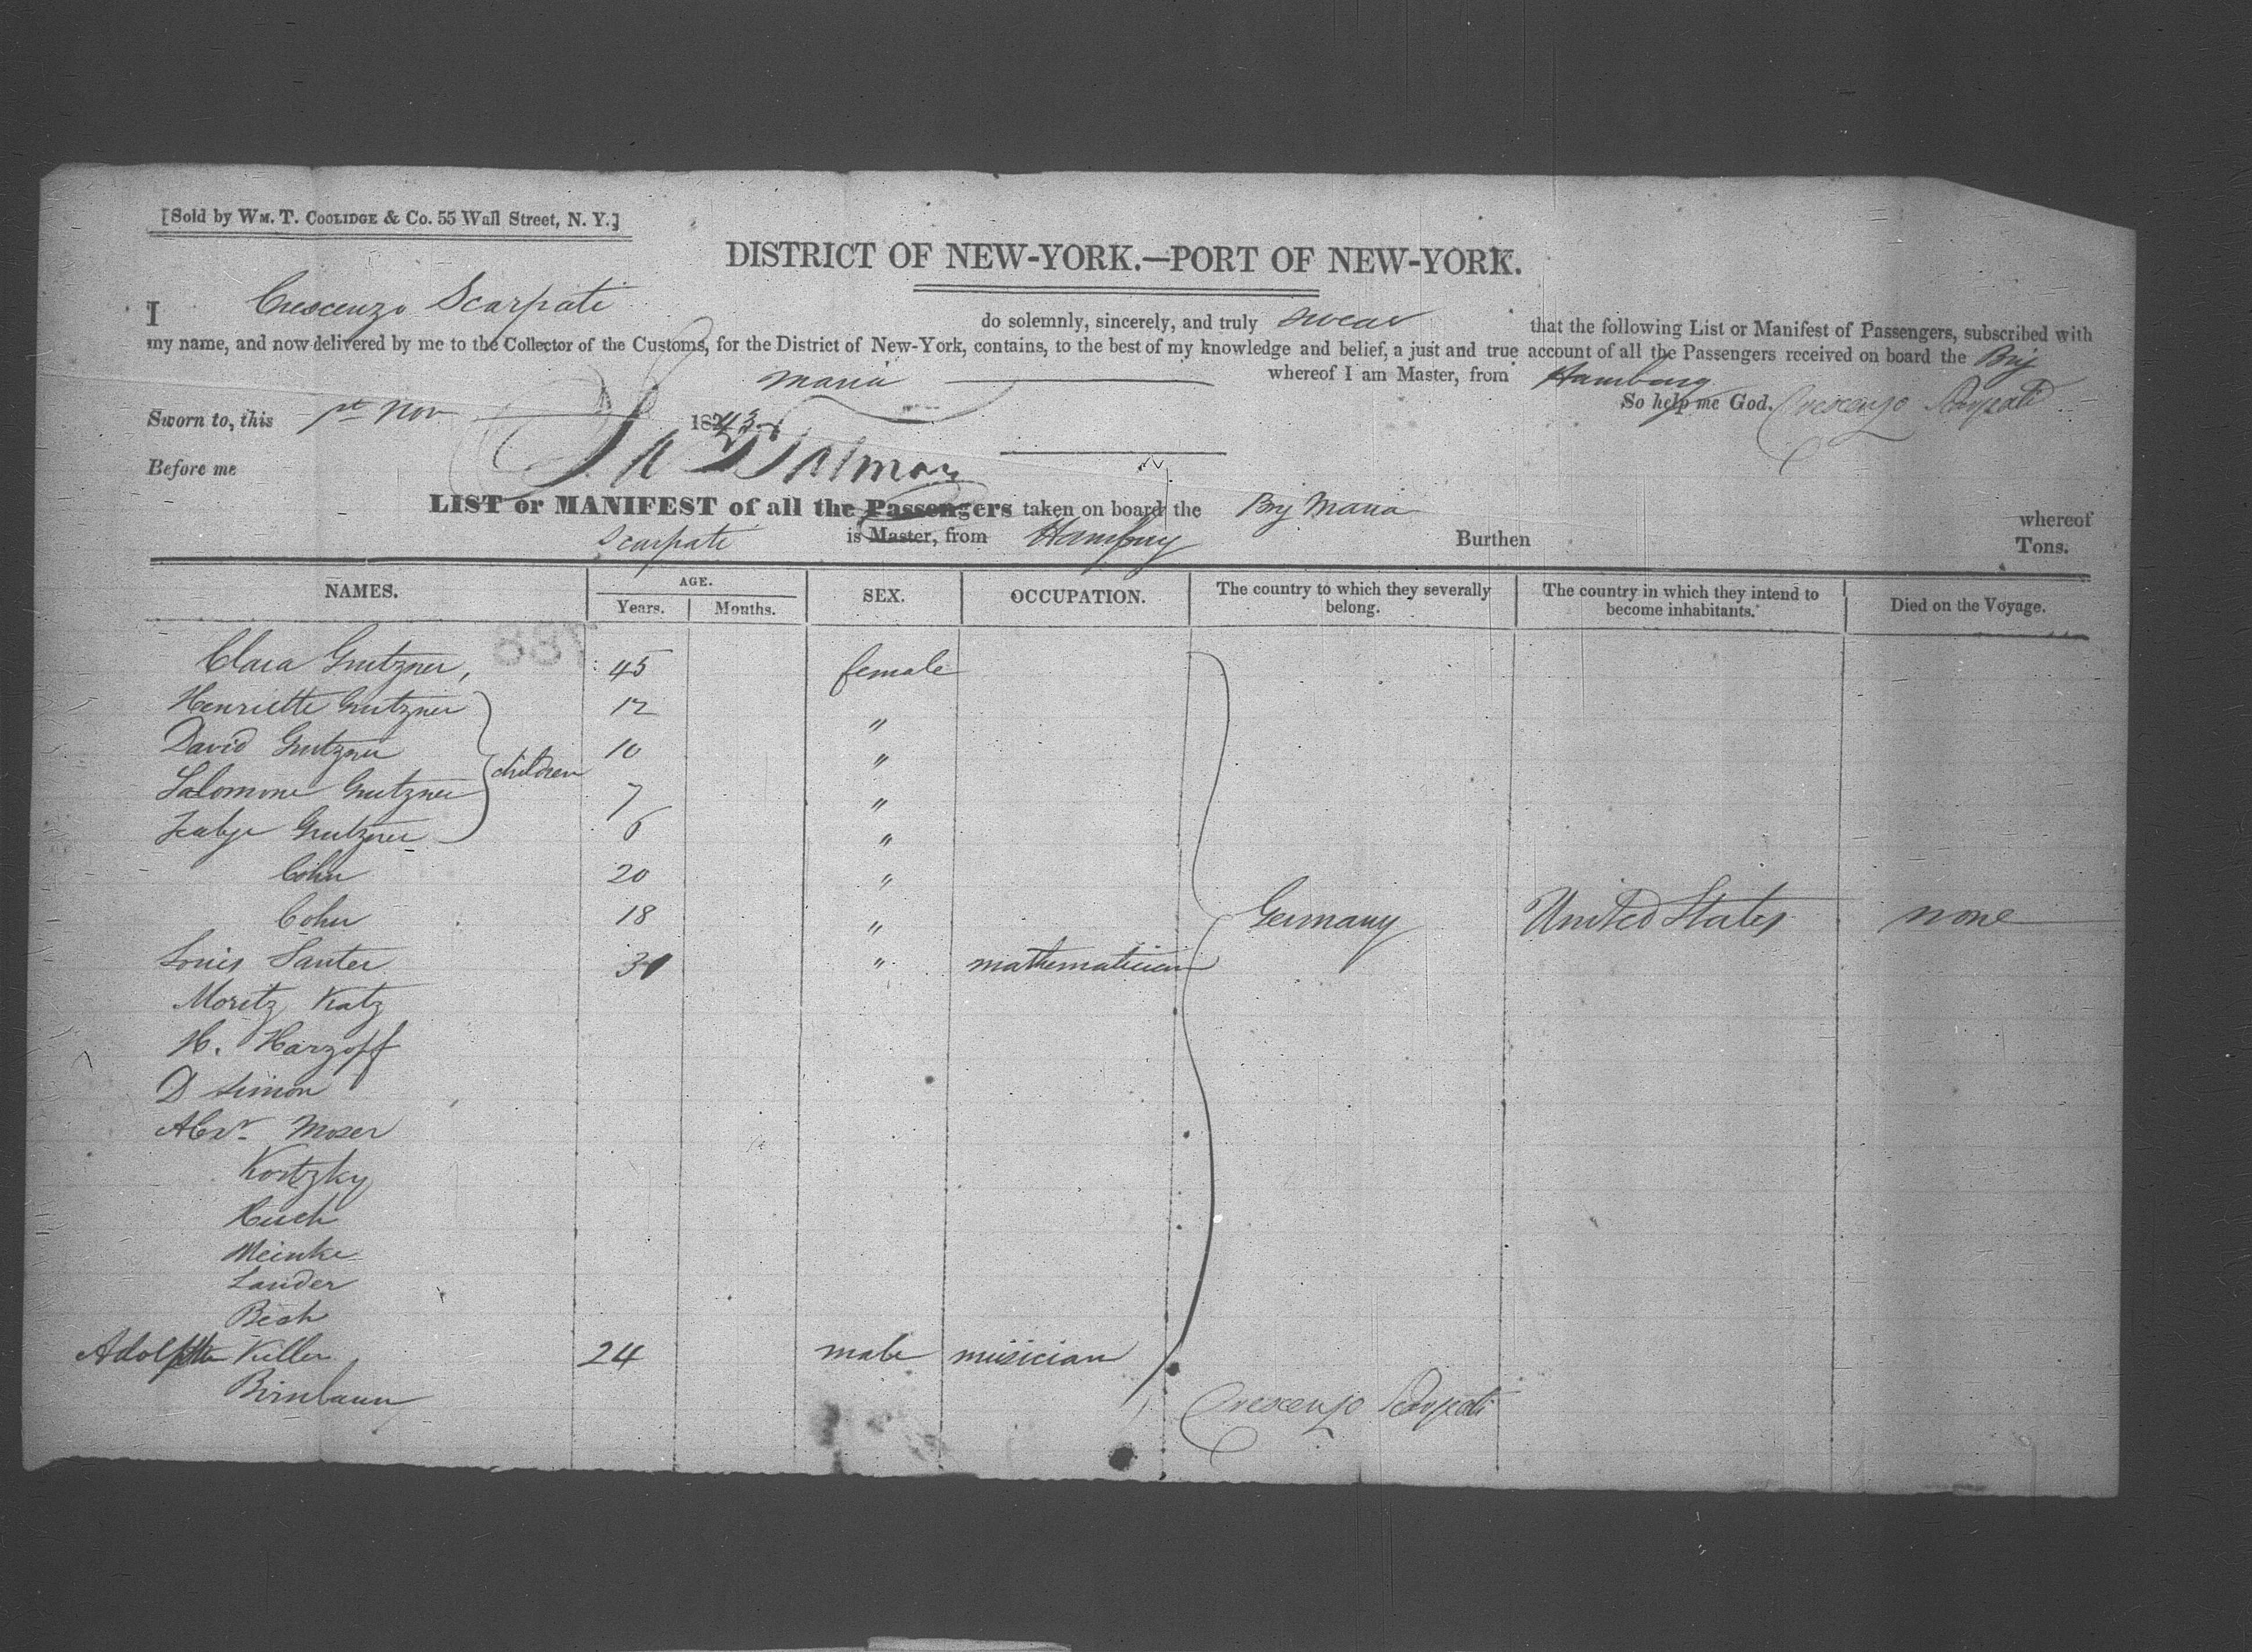 [Sold by WM. T. COOLIDGE & Co. 55 Wall Street, N. Y.]
DISTRICT OF NEW-YORK.—PORT OF NEW-YORK.
I Crescenzo Scarpati do solemnly, sincerely, and truly swear that the following List or Manifest of Passengers, subscribed with
my name, and now delivered by me to the Collector of the Customs, for the District of New-York, contains, to the best of my knowledge and belief, a just and true account of all the Passengers received on board the Brig
Maria whereof I am Master, from Hamburg
So help me God. Crescenzo Scarpati
Sworn to, this 1st Nov 1843
Before me
LIST or MANIFEST of all the Passengers taken on board the Brig Maria whereof
Scarpati is Master, from Hamburg Burthen Tons.
NAMES. AGE. Years. Months. SEX. OCCUPATION. The country to which they severally belong. The country in which they intend to become inhabitants. Died on the Voyage.
Clara Grutzner, 45 female
Henriette Grutzner 12 "
David Grutzner 10 "
children
Salomone Grutzner 7 "
Grutzner 6 "
Cohn 20 "
Cohn 18 " Germany United States none
Louis Sauter 31 " mathematician
Moritz Katz
H. Harzoff
D Simon
Moser
Kortzky
Meinke
Lander
Adolph Keller 24 male musician
Birnbaum
Crescenzo Scarpati